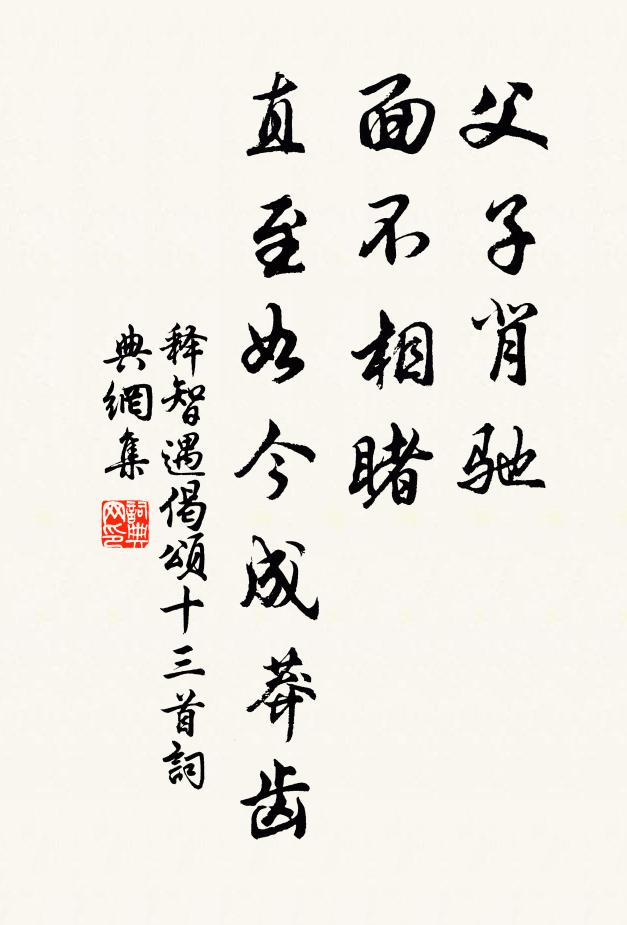 父子背驰
面不相睹
直至如今成莽齿
释智遇偈頌十三首詞
典網集
詞典
网印